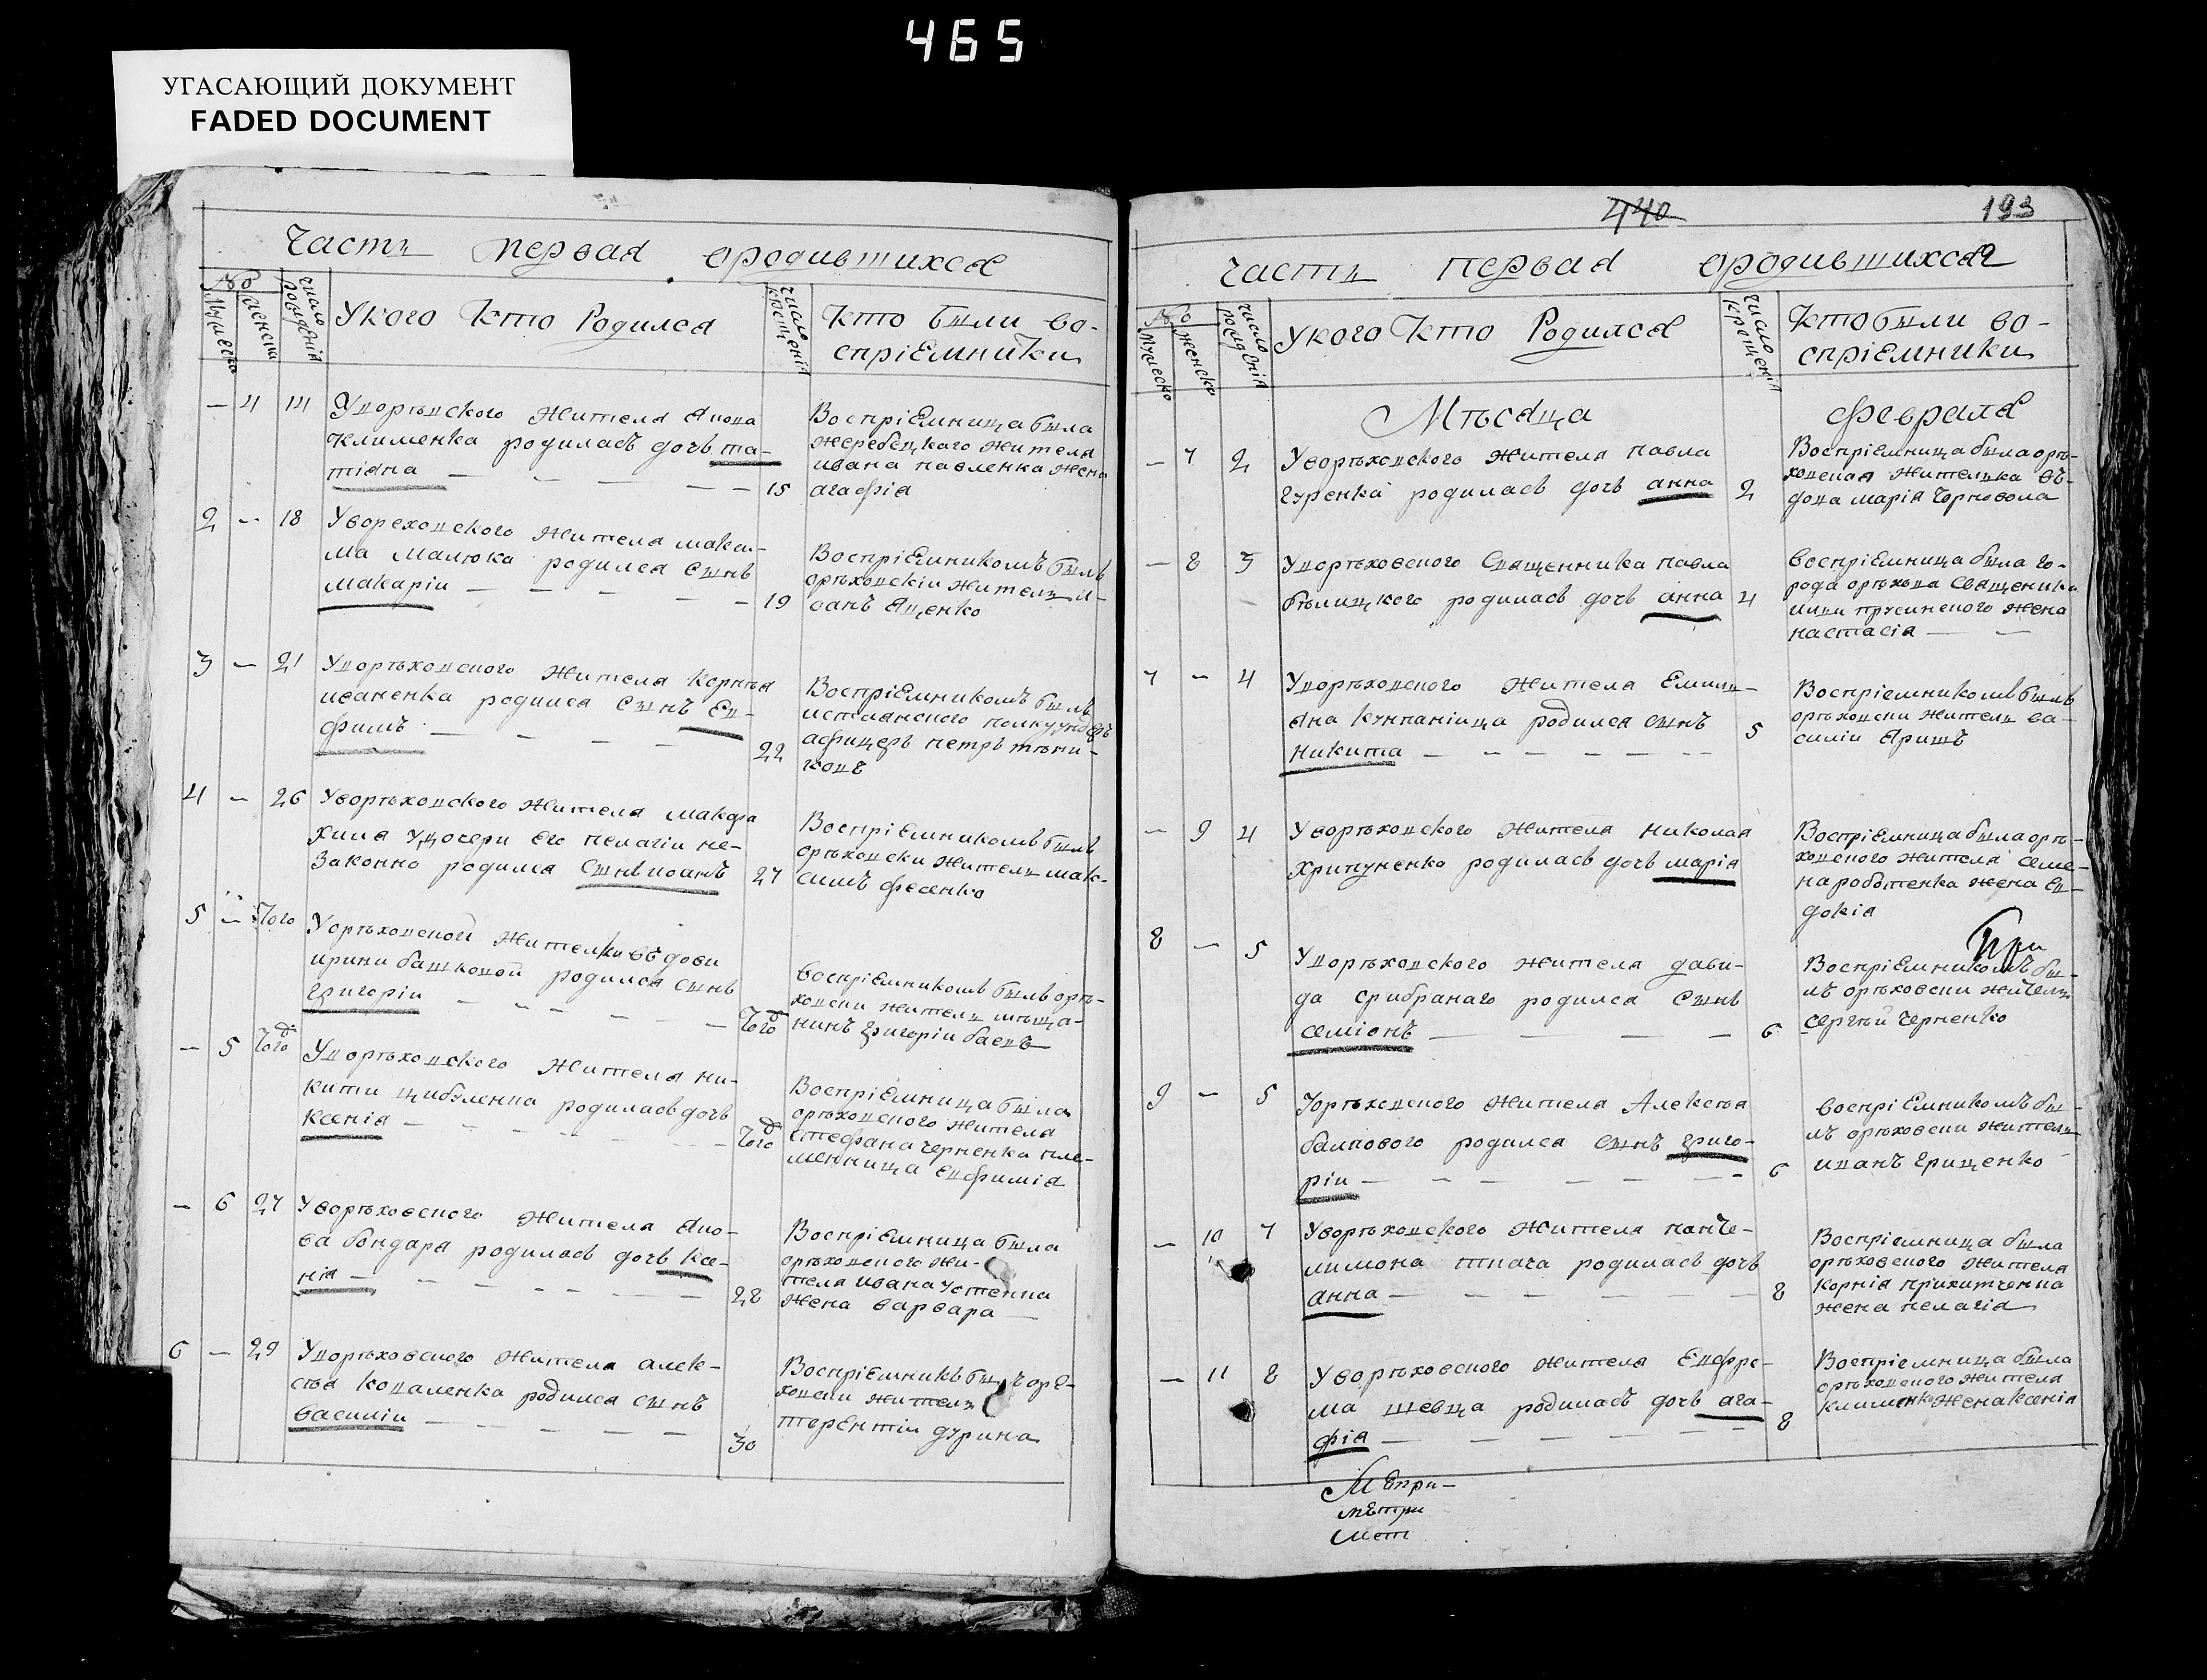 465
УГАСАЮЩИЙ ДОКУМЕНТ
FADED DOCUMENT
Часть первая ородившихся
№
Мужеска
женска
число рождения
Укого Кто Родился
число крещенія
Кто были во-
спріемники
4 14
Уворѣховского жителя Якова
Клименка родиласъ дочь та-
тіяна
15
Воспріемница была
жеребецкаго жителя
ивана павленка жена
агафія
2 18
Увореховского жителя макси-
ма малюка родился сынъ
макаріи
19
Воспріемникомъ былъ
орѣховскіи житель и-
ванъ Яценко
3 21
Уворѣховского жителя Корнѣя
иваненка родился сынъ Ев-
фимъ
22
Воспріемникомъ былъ
полку ундеръ
афицеръ петръ
ковъ
4 26
Уворѣховского жителя
хила удочери его пелагіи не-
законно родился сынъ иоанъ
27
Воспріемникомъ былъ
орѣховски житель мак-
симъ фесенко
5 Того
Уорѣховской жителки вдови
ирини башковой родился сынъ
григоріи
Тогд
Воспріемникомъ былъ орѣ-
ховски житель мѣща-
нинъ григоріи баевъ
5 Тогд
Уворѣховского жителя ни-
кити цибуленка родиласъ дочь
ксенія
Тогд
Воспріемница была
орѣховского жителя
стефана черненка пле-
менница Евфимія
6 27
Уворѣховского жителя Яко-
ва бондара родиласъ дочь ксе-
нія
28
Воспріемница была
орѣховского жи-
теля ивана устенка
жена варвара
6 29
Уворѣховского жителя алек-
сѣя коваленка родился сынъ
василіи
30
Воспріемникъ былъ орѣ-
ховски житель
терентіи дурина
440 193
часть первая ородившихся
№
Мужеско
женско
число рожденія
укого Кто Родился
число крещенія
Кто были во-
спріемники
Мѣсяца февраля
7 2
Уворѣховского жителя павла
гуренка родиласъ дочь анна
2
Воспріемница была орѣ-
ховская жителька въ-
дова марія Чорновола
8 3
Уворѣховского Священника павла
бѣлицкого родиласъ дочь анна
4
Воспріемница была го-
рода орѣхова Священика
жена
настасія
7 4
Уворѣховского жителя Емиль-
яна Кумпанійца родился сынъ
никита
5
Воспріемникомъ былъ
орѣховски житель ва-
силіи Яришъ
9 4
Уворѣховского жителя николая
Хрипуненко родиласъ дочь марія
Воспріемница была орѣ-
ховского жителя семе-
на роботенка жена Ев-
докія
8 5
Уворѣховского жителя дави-
да срибранаго родился сынъ
семіонъ
6
При
Воспріемникомъ бы-
лъ орѣховски житель
сергѣй черненко
9 5
Уорѣховского жителя Алексѣя
балпового родился сынъ григо-
ріи
6
Воспріемникомъ бы-
лъ орѣховски житель
иванъ Грищенко
10 7
Уворѣховского жителя панте-
лимона ткача родиласъ дочь
анна
8
Воспріемница была
орѣховского жителя
Корнія
жена пелагія
11 8
Уворѣховского жителя Евфре-
ма шевца родиласъ дочь ага-
фія
8
Воспріемница была
орѣховского жителя
клименко жена ксенія